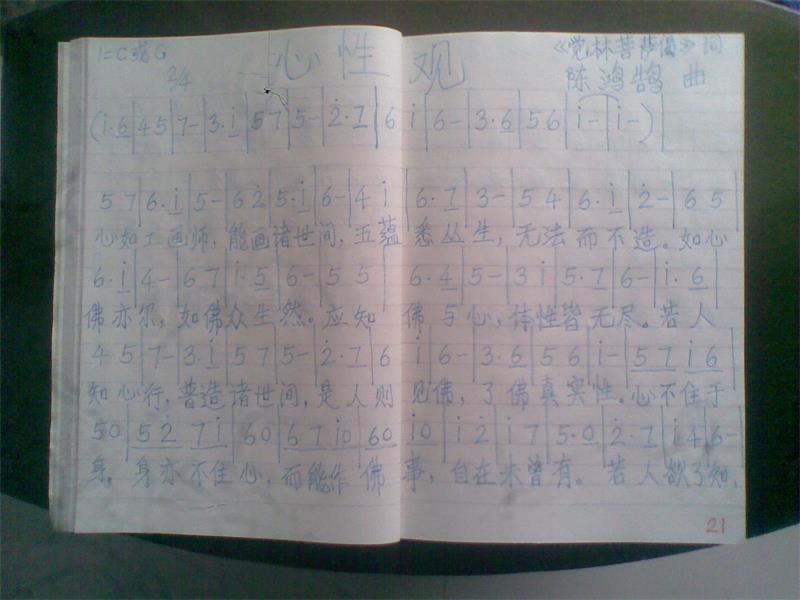 1=C或G 心性观 《觉林菩萨偈》词
2/4 陈鸿鹄 曲
(i̇·6|45|7-|3·i̇|57|5-|2̇·7|6i̇|6-|3·6|56|i̇-|i̇-)|
57|6·i̇|5-|62̇|5·i̇|6-|4i̇|6·7|3-|54|6·i̇|2̇-|65
心如工画师,能画诸世间,五蕴悉丛生,无法而不造。如心
6·i̇|4-|67|i̇·5|6-|55|6·4|5-|3i̇|5·7|6-|i̇·6|
佛亦尔,如佛众生然。应知佛与心,体性皆无尽。若人
45|7-|3·i̇|57|5-|2̇·7|6i̇|6-|3·6|56|i̇-|57i̇6|
知心行,普造诸世间,是人则见佛,了佛真实性。心不住于
50|527i̇|60|67i̇0|60i̇0|i̇2̇|i̇7|5·0|2̇·7|i̇4|6-
身,身亦不住心,而能作佛事,自在未曾有。若人欲了知,
21